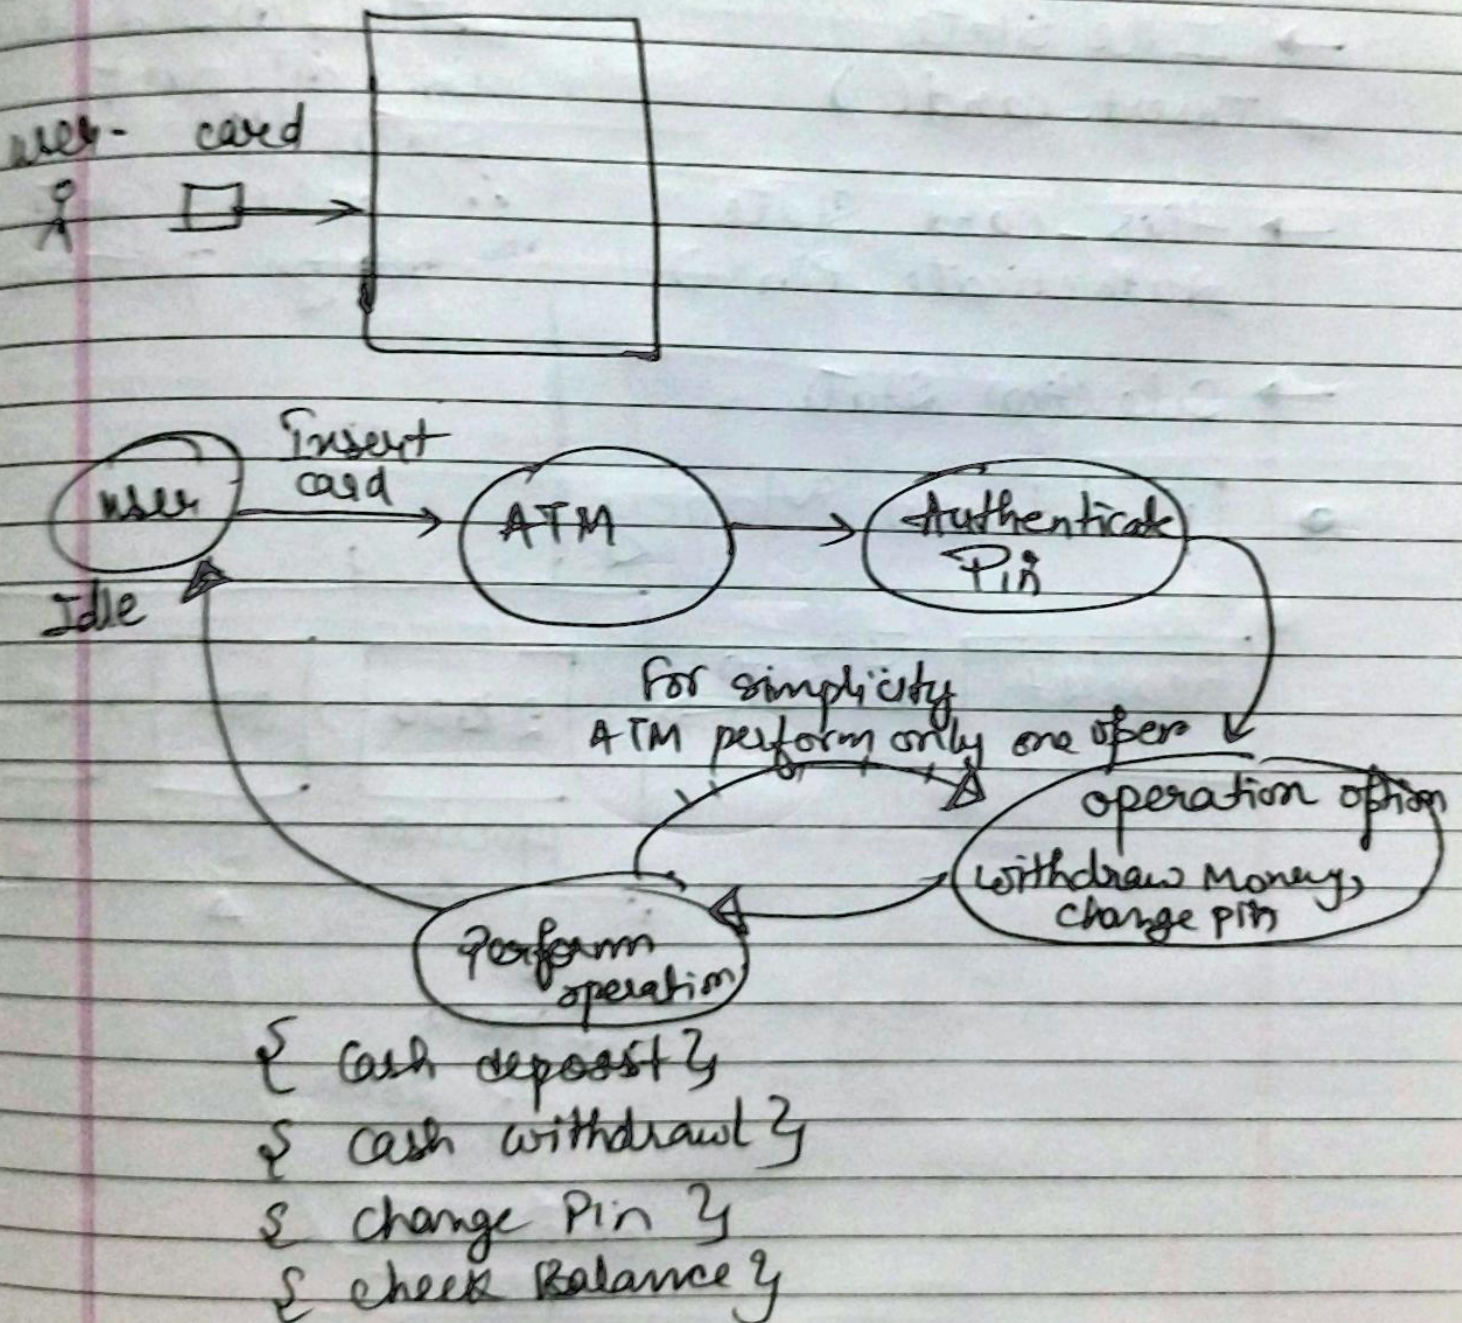 user- card
Insert
card
user
ATM
Authenticate
Pin
Idle
For simplicity
ATM perform only one oper
operation option
withdraw Money,
change pin
Perform
operation
{ Cash deposit }
{ cash withdrawl }
{ change Pin }
{ check Balance }